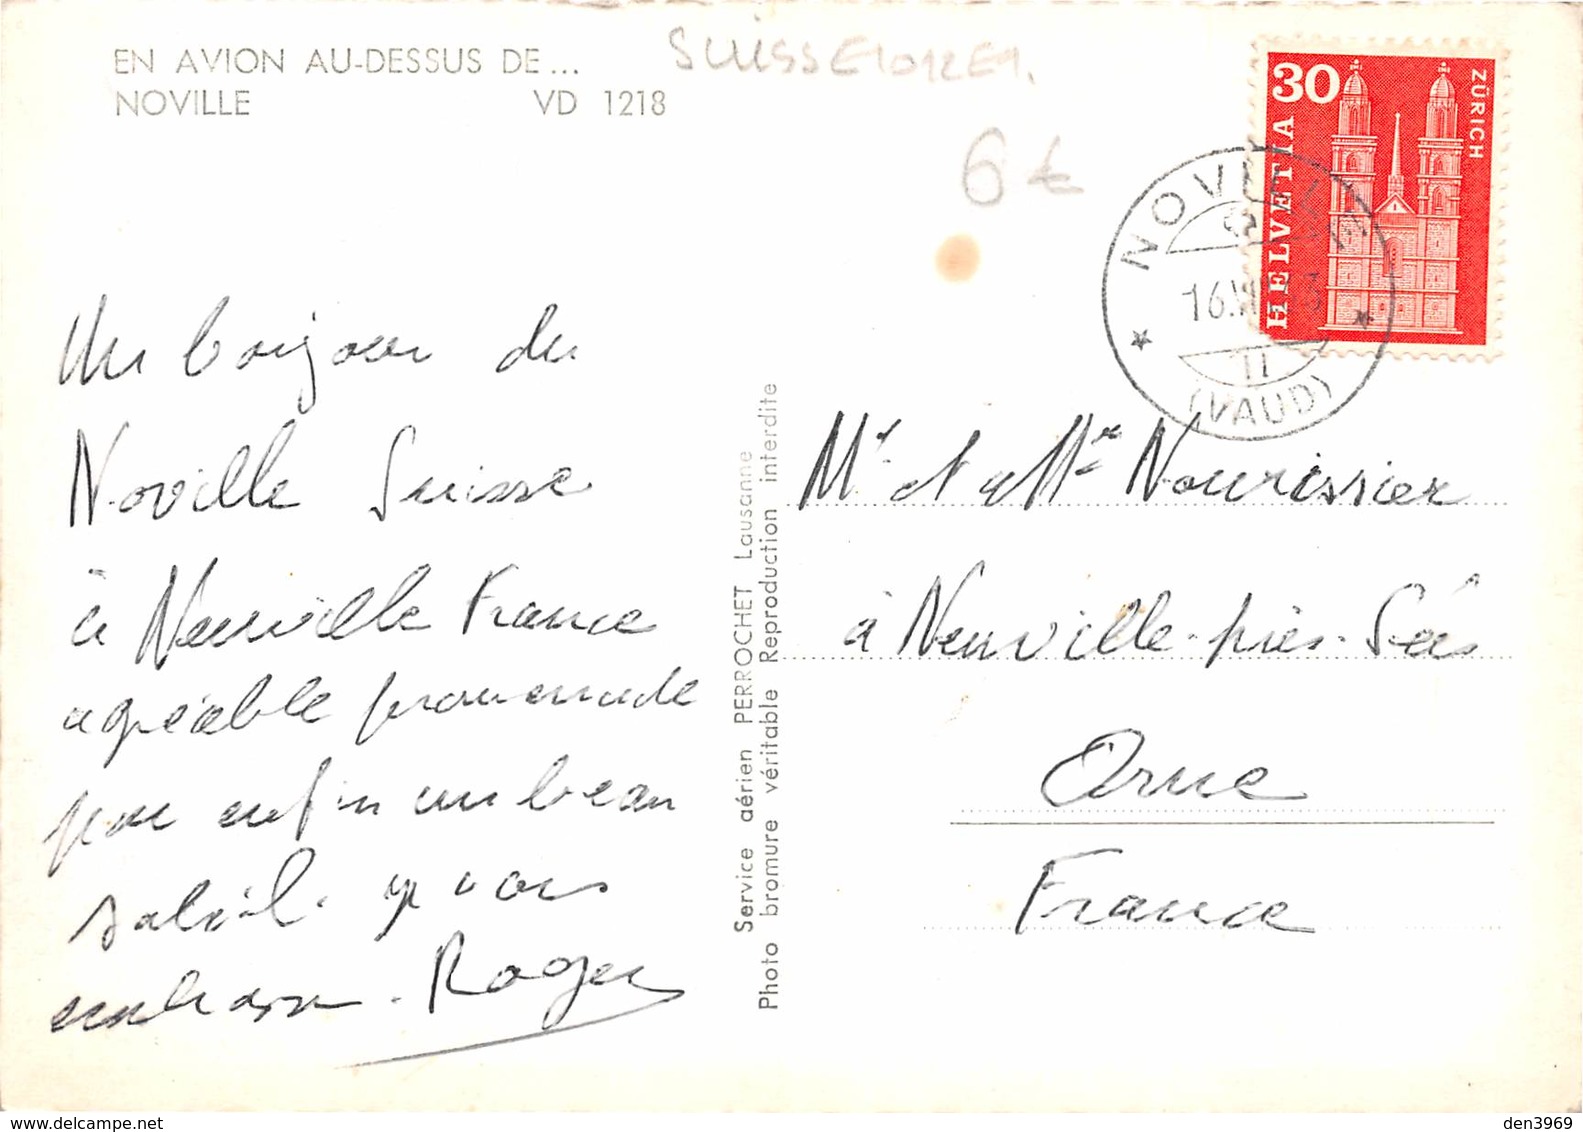 EN AVION AU-DESSUS DE...
NOVILLE VD 1218
6 €
30
HELVETIA
ZÜRICH
NOVILLE
16.
11
(VAUD)
Un bonjour de
Noville Suisse
à Neuville France
agréable promenade
par enfin un beau
soleil. je vous
embrasse. Roger
Service aérien PERROCHET Lausanne
Photo bromure véritable Reproduction interdite
Mr et Mme Nourissier
à Neuville-près-Sées
Orne
France
den3969